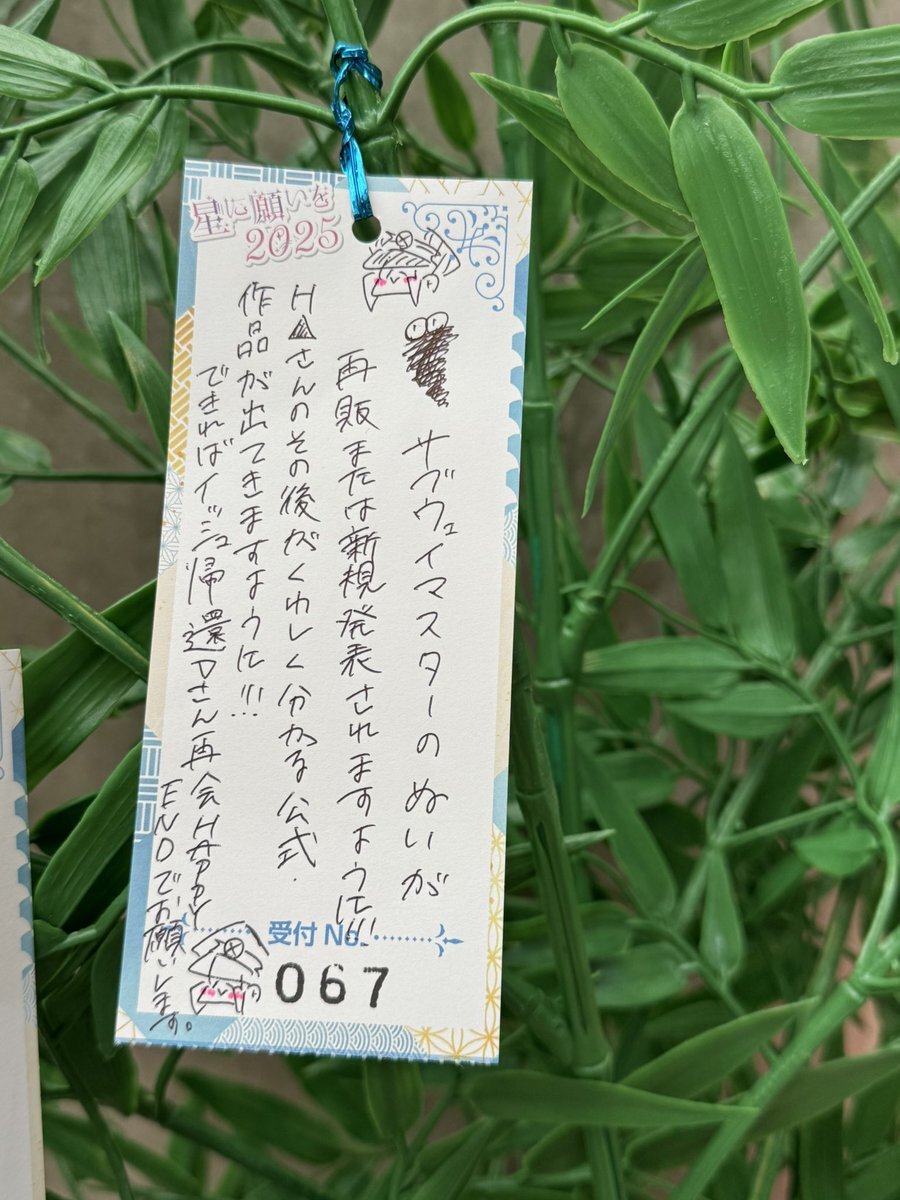 星に願いを
2025
サブウェイマスターのぬいが
再販または新規発表されますように!!!
H▲さんのその後がくわしく分かる公式
作品が出てきますように!!!
できればイッシュ帰還▽さん再会HAPPY
ENDでお願いします。
受付 No.
067